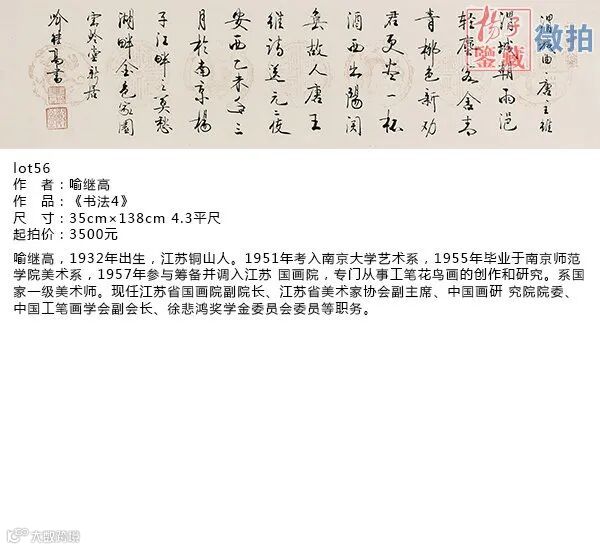 渭城曲 唐 王維
渭城朝雨浥
輕塵客舍青
青柳色新劝
君更尽一杯
酒西出陽関
無故人唐王
維诗送元二使
安西乙未年三
月於南京楊
子江畔之莫愁
湖畔金色家園
堂新居
喻继高書
扬子鉴藏
微拍
lot56
作 者：喻继高
作 品：《书法4》
尺 寸：35cm×138cm 4.3平尺
起拍价：3500元
喻继高，1932年出生，江苏铜山人。1951年考入南京大学艺术系，1955年毕业于南京师范
学院美术系，1957年参与筹备并调入江苏 国画院，专门从事工笔花鸟画的创作和研究。系国
家一级美术师。现任江苏省国画院副院长、江苏省美术家协会副主席、中国画研 究院院委、
中国工笔画学会副会长、徐悲鸿奖学金委员会委员等职务。
大数跨境